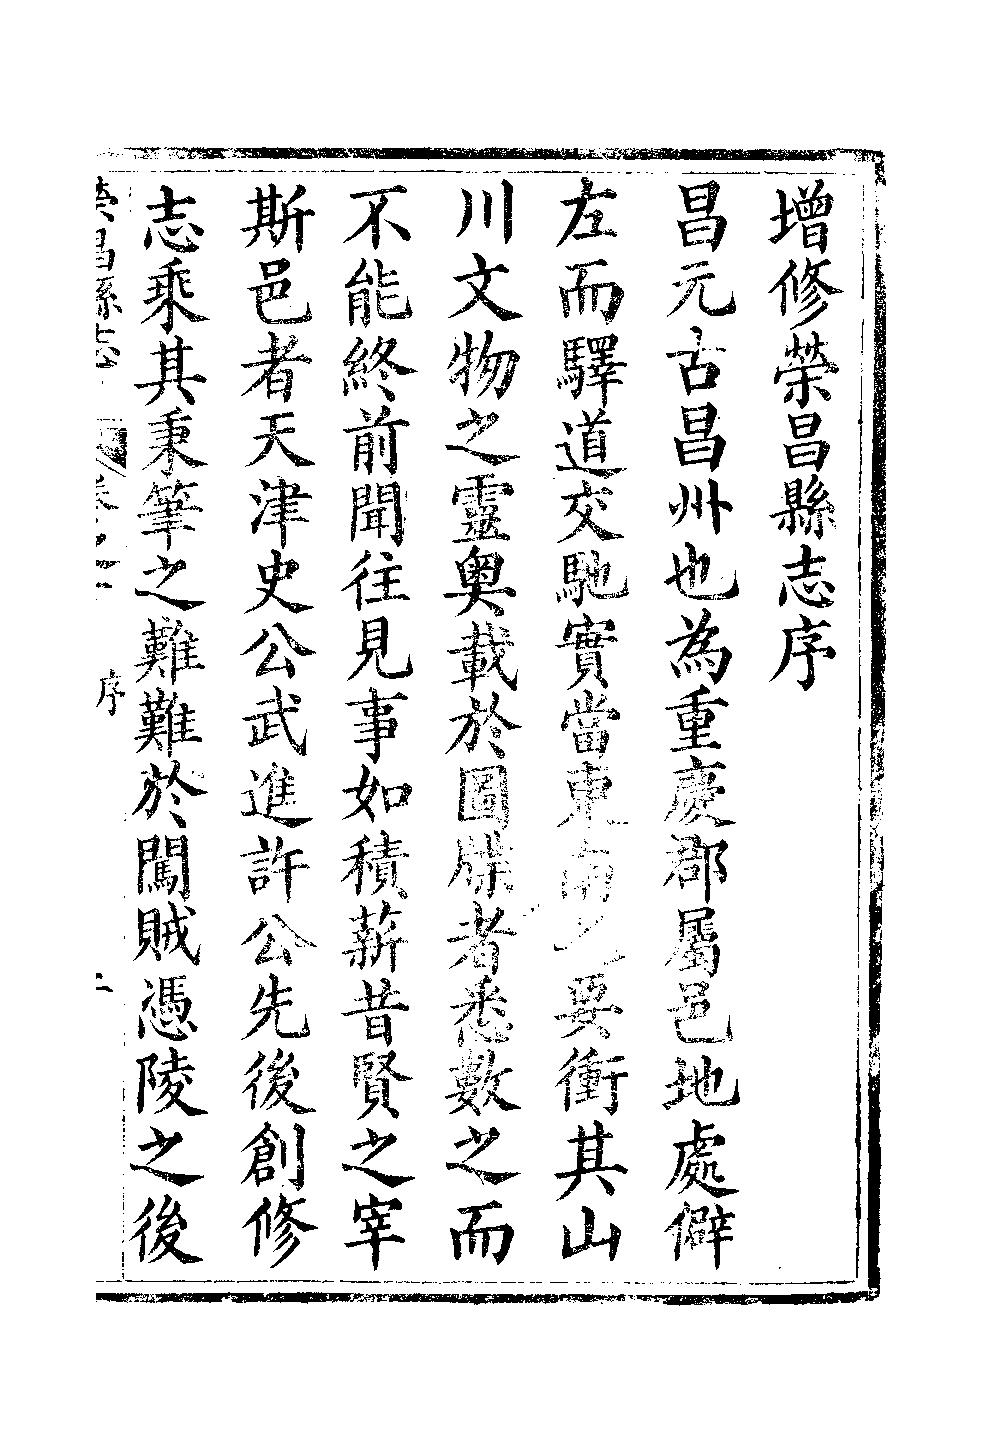 增修榮昌縣志序
昌元古昌州也為重慶郡屬邑地處僻
左而驛道交馳實當東南之要衝其山
川文物之靈奧載於圖牒者悉數之而
不能終前聞往見事如積薪昔賢之宰
斯邑者天津史公武進許公先後創修
志乘其秉筆之難難於闖賊憑陵之後
榮昌縣志 卷之 序 一